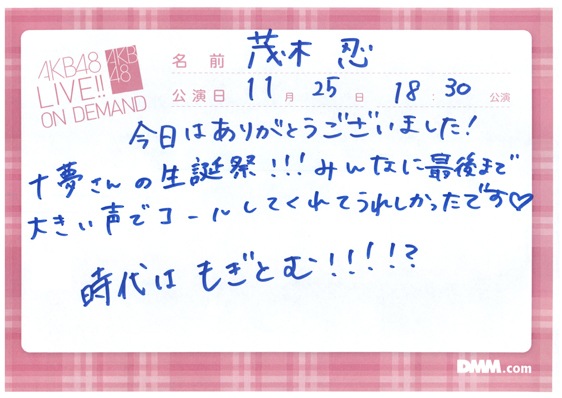 AKB48
LIVE!!
ON DEMAND
AKB
48
名前 茂木 忍
公演日 11月 25日 18:30 公演
今日はありがとうございました!
十夢さんの生誕祭!!!みんなに最後まで
大きい声でコールしてくれてうれしかったです♡
時代はもぎとむ!!!!?
DMM.com